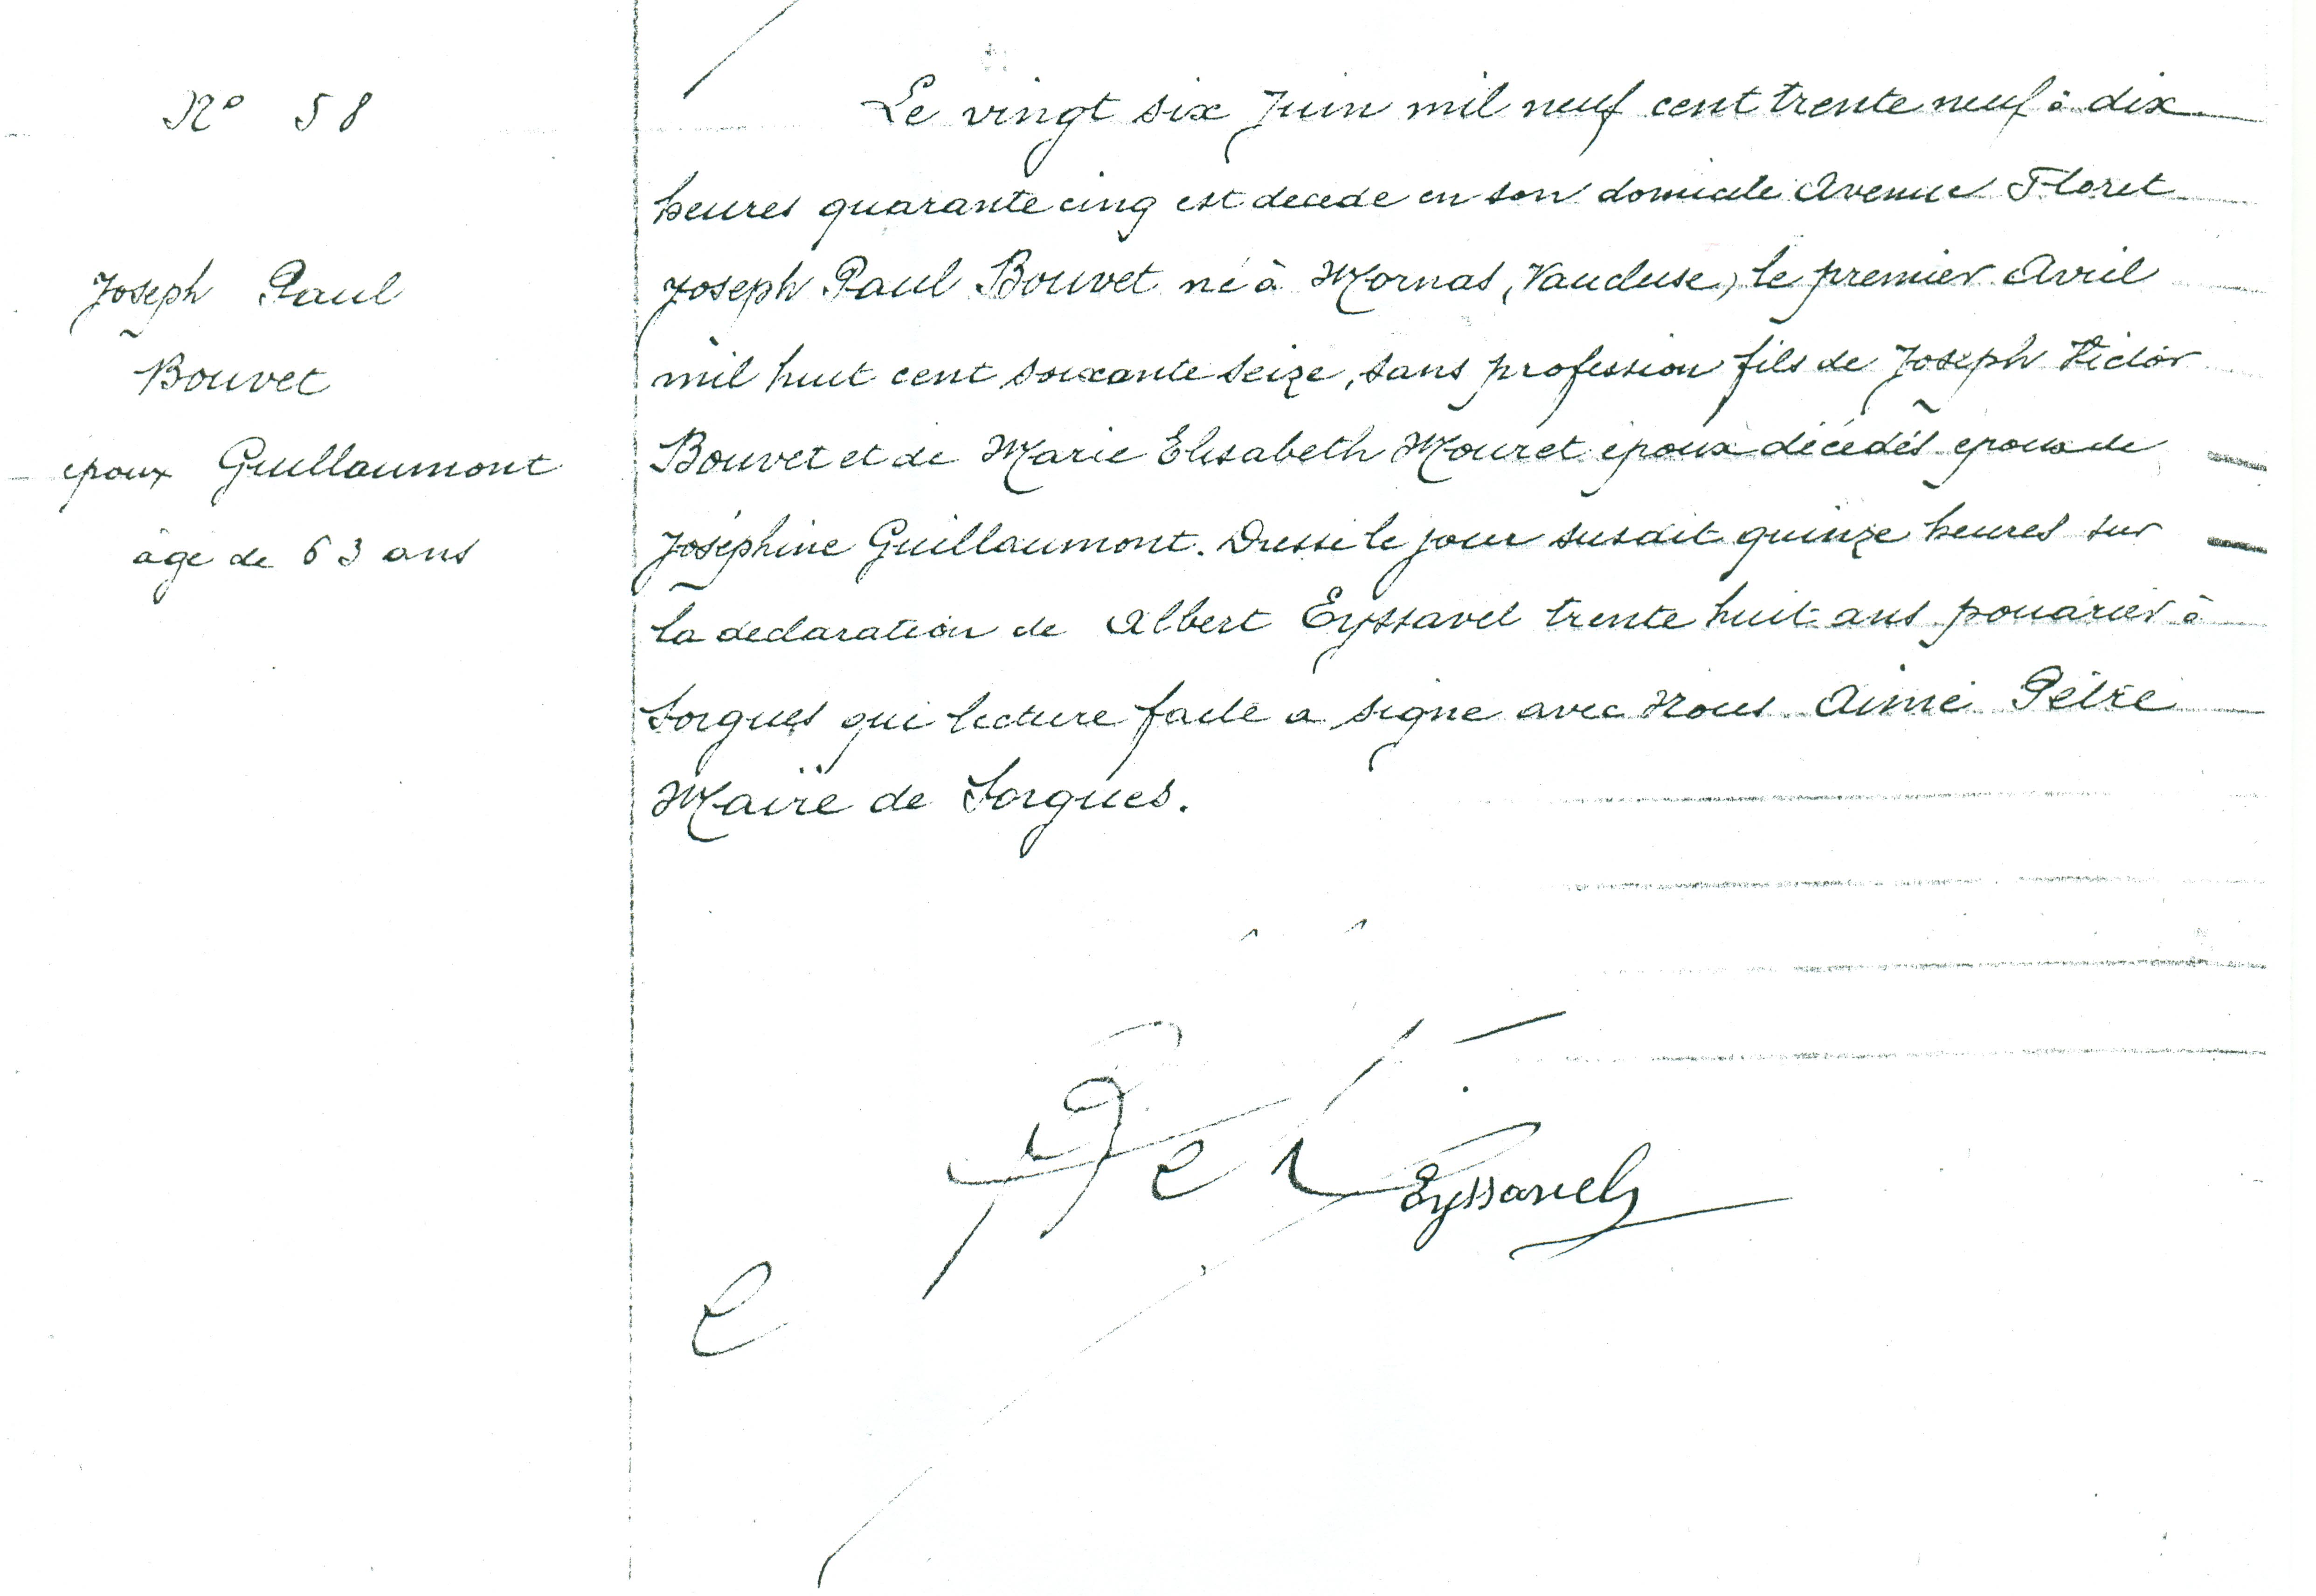 N° 58
Joseph Paul
Bouvet
époux Guillaumont
âgé de 63 ans
Le vingt six Juin mil neuf cent trente neuf à dix
heures quarante cinq est décédé en son domicile Avenue Floret
Joseph Paul Bouvet né à Mornas, (Vaucluse) le premier Avril
mil huit cent soixante seize, sans profession fils de Joseph Victor
Bouvet et de Marie Elisabeth Mouret époux décédés époux de
Joséphine Guillaumont. Dressé le jour susdit quinze heures sur
la déclaration de Albert Eyssavel trente huit ans
Sorgues qui lecture faite a signé avec Nous Aimé Pétre
Maire de Sorgues.
Eyssavel